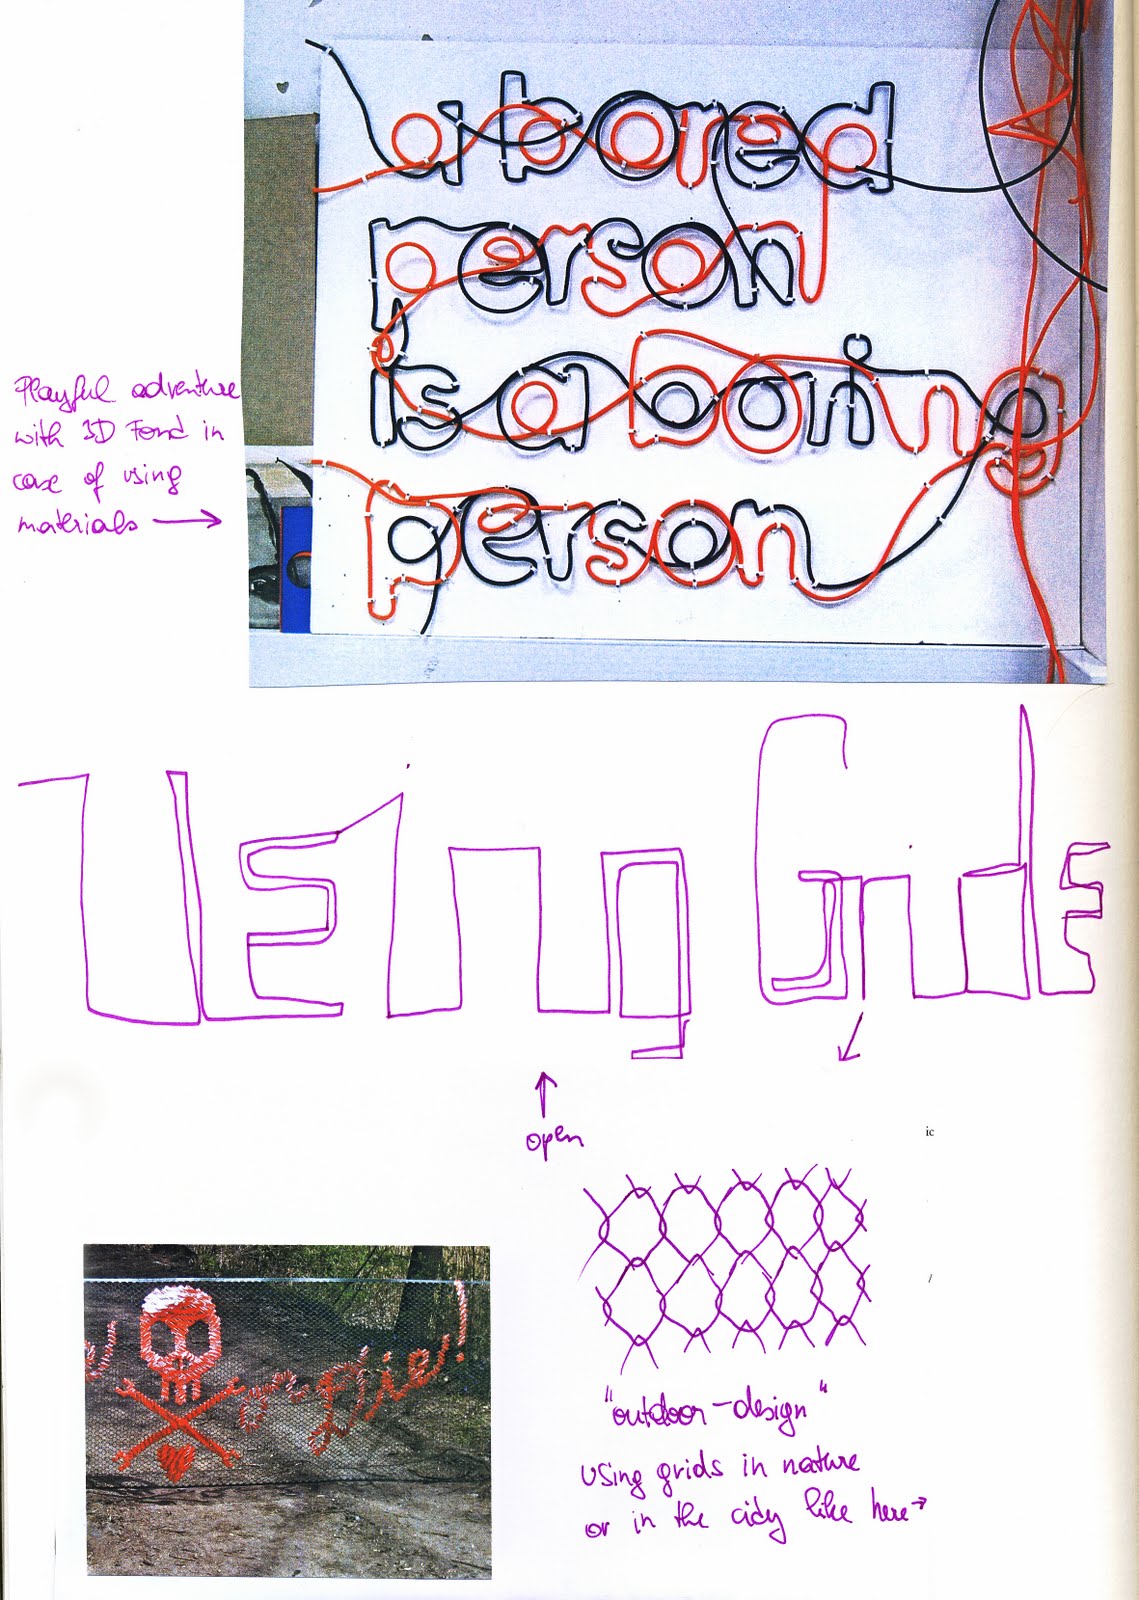 a bored
person
is a boring
person
Playful adventure
with 3D Fond in
case of using
materials →
Using Grids
open
ic
/
or Die!
"outdoor-design"
using grids in nature
or in the city like here →